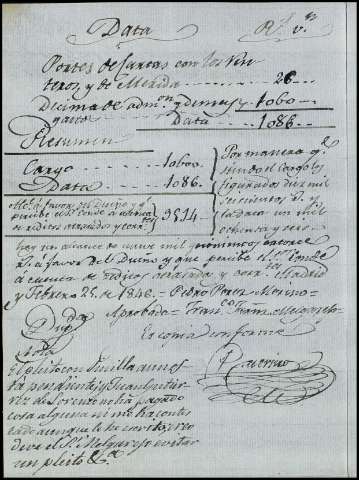 Data R.s v.n
Portes de Cartas con los Ren
teros, y de Mérida ........ 26
Decima de adm.on y demas 1.060..
gasto Data ...... 1.086..
Resumen
Cargo ........ 10600..
Data ......... 1.086..
Alc.e a favor del Dueño y q.e
percibe el S.r Conde a cuenta
de réditos atrasados y corr.tes 9514
Por manera q.e
siendo el cargo los
figurados diez mil
seiscientos r.s y
la data un mil
ochenta y seis
hay un alcance de nueve mil quinientos catorce
r.s a favor del Dueño y que percibe el S.r Conde
a cuenta de réditos atrasados y corr.tes Madrid
y Febrero 25, de 1848 = Pedro Perez Merino =
Aprobada = Fran.co Melgarejo =
Es copia conforme
Nota
El pleito con
ta pendiente y Juan Gutier
rez de Lorenzo no ha pagado
cosa alguna ni me ha contes
tado aunque le he escrito, y si
deve el S.r Melgarejo evitar
un pleito &.a